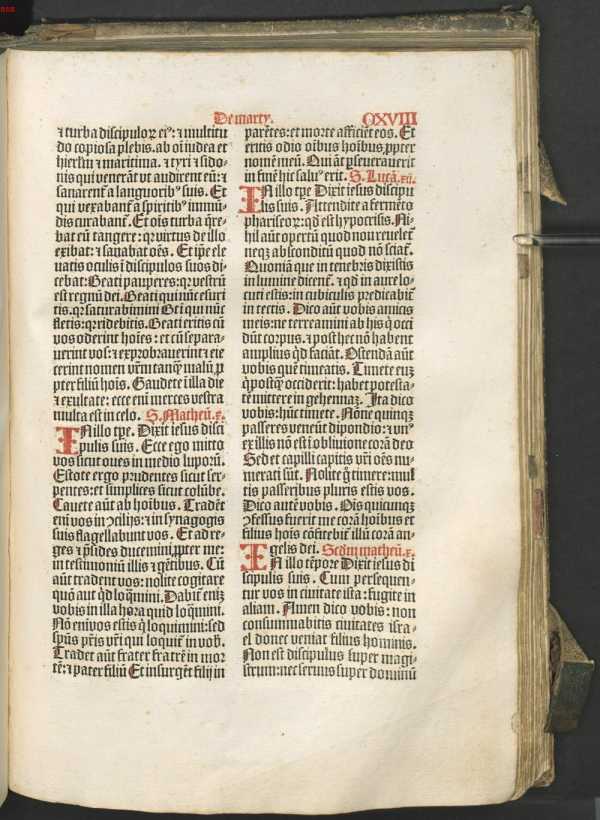 De marty.
CXVIII
⁊ turba discipuloꝝ eiꝰ: ⁊ multitu
do copiosa plebis. ab oi iudea et
hierlm̄ ⁊ maritima. ⁊ tyri ⁊ sido⸗
nis qui venerāt vt audirent eū: ⁊
sanarent᷑ a languoribꝰ suis. Et
qui vexabant᷑ a spiritibꝰ immū⸗
dis curabant᷑. Et oīs turba q̄re⸗
bat eū tangere: qꝛ virtus de illo
exibat: ⁊ sanabat oēs. Et ip̄e ele
uatis oculis ī discipulos suos di⸗
cebat: Beati pauperes: qꝛ vestrū
est regnū dei. Beati qui nūc esuri
tis. qꝛ saturabimini Bt̄i qui nūc
fletis: qꝛ ridebitis. Beati eritis cū
vos oderint hoīes: et cū separa⸗
uerint vos: ⁊ exprobrauerint ⁊ eie
cerint nomen vr̄m tanqͣꝫ malū ꝓ
pter filiū hoīs. Gaudete ī illa die
⁊ exultate: ecce eni merces vestra
multa est in celo. S. Matheū. x.
IN illo tꝑe. Dixit iesus disci
pulis suis. Ecce ego mitto
vos sicut oues in medio luporū.
Estote ergo prudentes sicut ser⸗
pentes: et simplices sicut colūbe.
Cauete aūt ab hoībus. Tradēt
eni vos in ↄcilijs: ⁊ in synagogis
suis flagellabunt vos. Et ad re⸗
ges ⁊ p̄sides ducemini ꝓpter me:
in testimoniū illis ⁊ gētibus. Cū
aūt tradent vos: nolite cogitare
quō aut qd̄ loqͣmini. Dabit᷑ eniꝫ
vobis in illa hora quid loqͣmini.
Nō eni vos estis q̇ loquimini: sed
spūs pr̄is vr̄i qui loquit᷑ in vob̄.
Tradet aūt frater fratrē in mor
tē: ⁊ pater filiū Et insurgēt filij in
parētes: et morte afficiēt eos. Et
eritis odio oībus hoībus, ꝓpter
nomē meū. Qui aūt ꝑseuerauerit
in finē hic saluꝰ erit. S. Lucā. xij.
IN illo tꝑe Dixit iesus discipu
lis suis. Attendite a fermēto
phariseoꝝ: qd̄ est hypocrisis. Ni⸗
hil aūt opertū quod nō reuelet᷑
neqꝫ absconditū quod nō sciat᷑.
Quoniā que in tenebris dixistis
in lumine dicent᷑. ⁊ qd̄ in aure lo⸗
cuti estis: in cubiculis predicabit᷑
in tectis. Dico aūt vobis amicis
meis: ne terreamini ab his q̇ occi
dūt corpus. ⁊ post hec nō habent
amplius qd̄ faciāt. Ostendā aūt
vobis quē timeatis. Timete euꝫ
q̇ postqͣꝫ occiderit: habet potesta⸗
tē mittere in gehennaꝫ. Ita dico
vobis: hūc timete. Nōne quinqꝫ
passeres veneūt dipondio: ⁊ vnꝰ
ex illis nō est ī obliuione corā deo
Sed et capilli capitis vr̄i oēs nu⸗
merati sūt. Nolite g̊ timere: mul
tis passeribus pluris estis vos.
Dico autē vobis. Oīs quicunqꝫ
ↄfessus fuerit me corā hoībus et
filius hoīs cōfitebit᷑ illū corā an⸗
gelis dei. Scdm̄ matheū. x.
IN illo tēpore Dixit iesus di
scipulis suis. Cum persequen⸗
tur vos in ciuitate ista: fugite in
aliam. Amen dico vobis: non
consummabitis ciuitates isra⸗
el donec veniat filius hominis.
Non est discipulus super magi⸗
strum: nec seruus super dominū